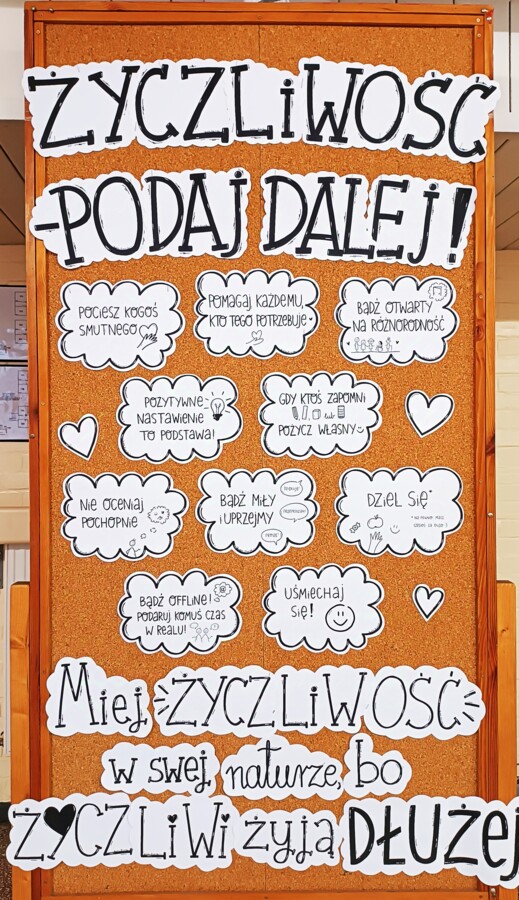 ŻYCZLiWOŚĆ
-PODAJ DALEJ!
POCIESZ KOGOŚ
SMUTNEGO
POMAGAJ KAŻDEMU,
KTO TEGO POTRZEBUJE
BĄDŹ OTWARTY
NA RÓŻNORODNOŚĆ
POZYTYWNE
NASTAWIENIE
TO PODSTAWA!
GDY KTOŚ ZAPOMNI
lub
POŻYCZ WŁASNY
NIE OCENIAJ
POCHOPNIE
BĄDŹ MIŁY
i UPRZEJMY
DZIEL SIĘ*
BĄDŹ OFFLINE!
PODARUJ KOMUŚ CZAS
W REALU!
UŚMIECHAJ
SIĘ!
Miej ŻYCZLiWOŚĆ
w swej naturze, bo
ŻYCZLiWi żyją DŁUŻEJ